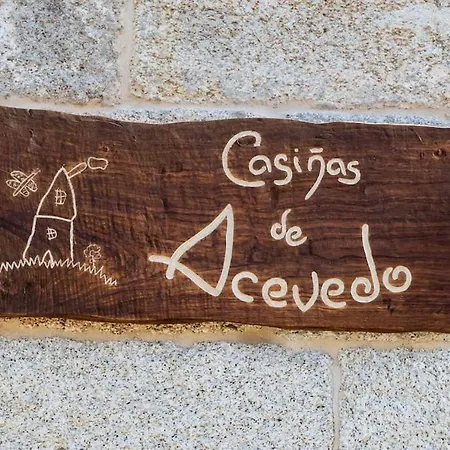 Casiñas
de
Acevedo